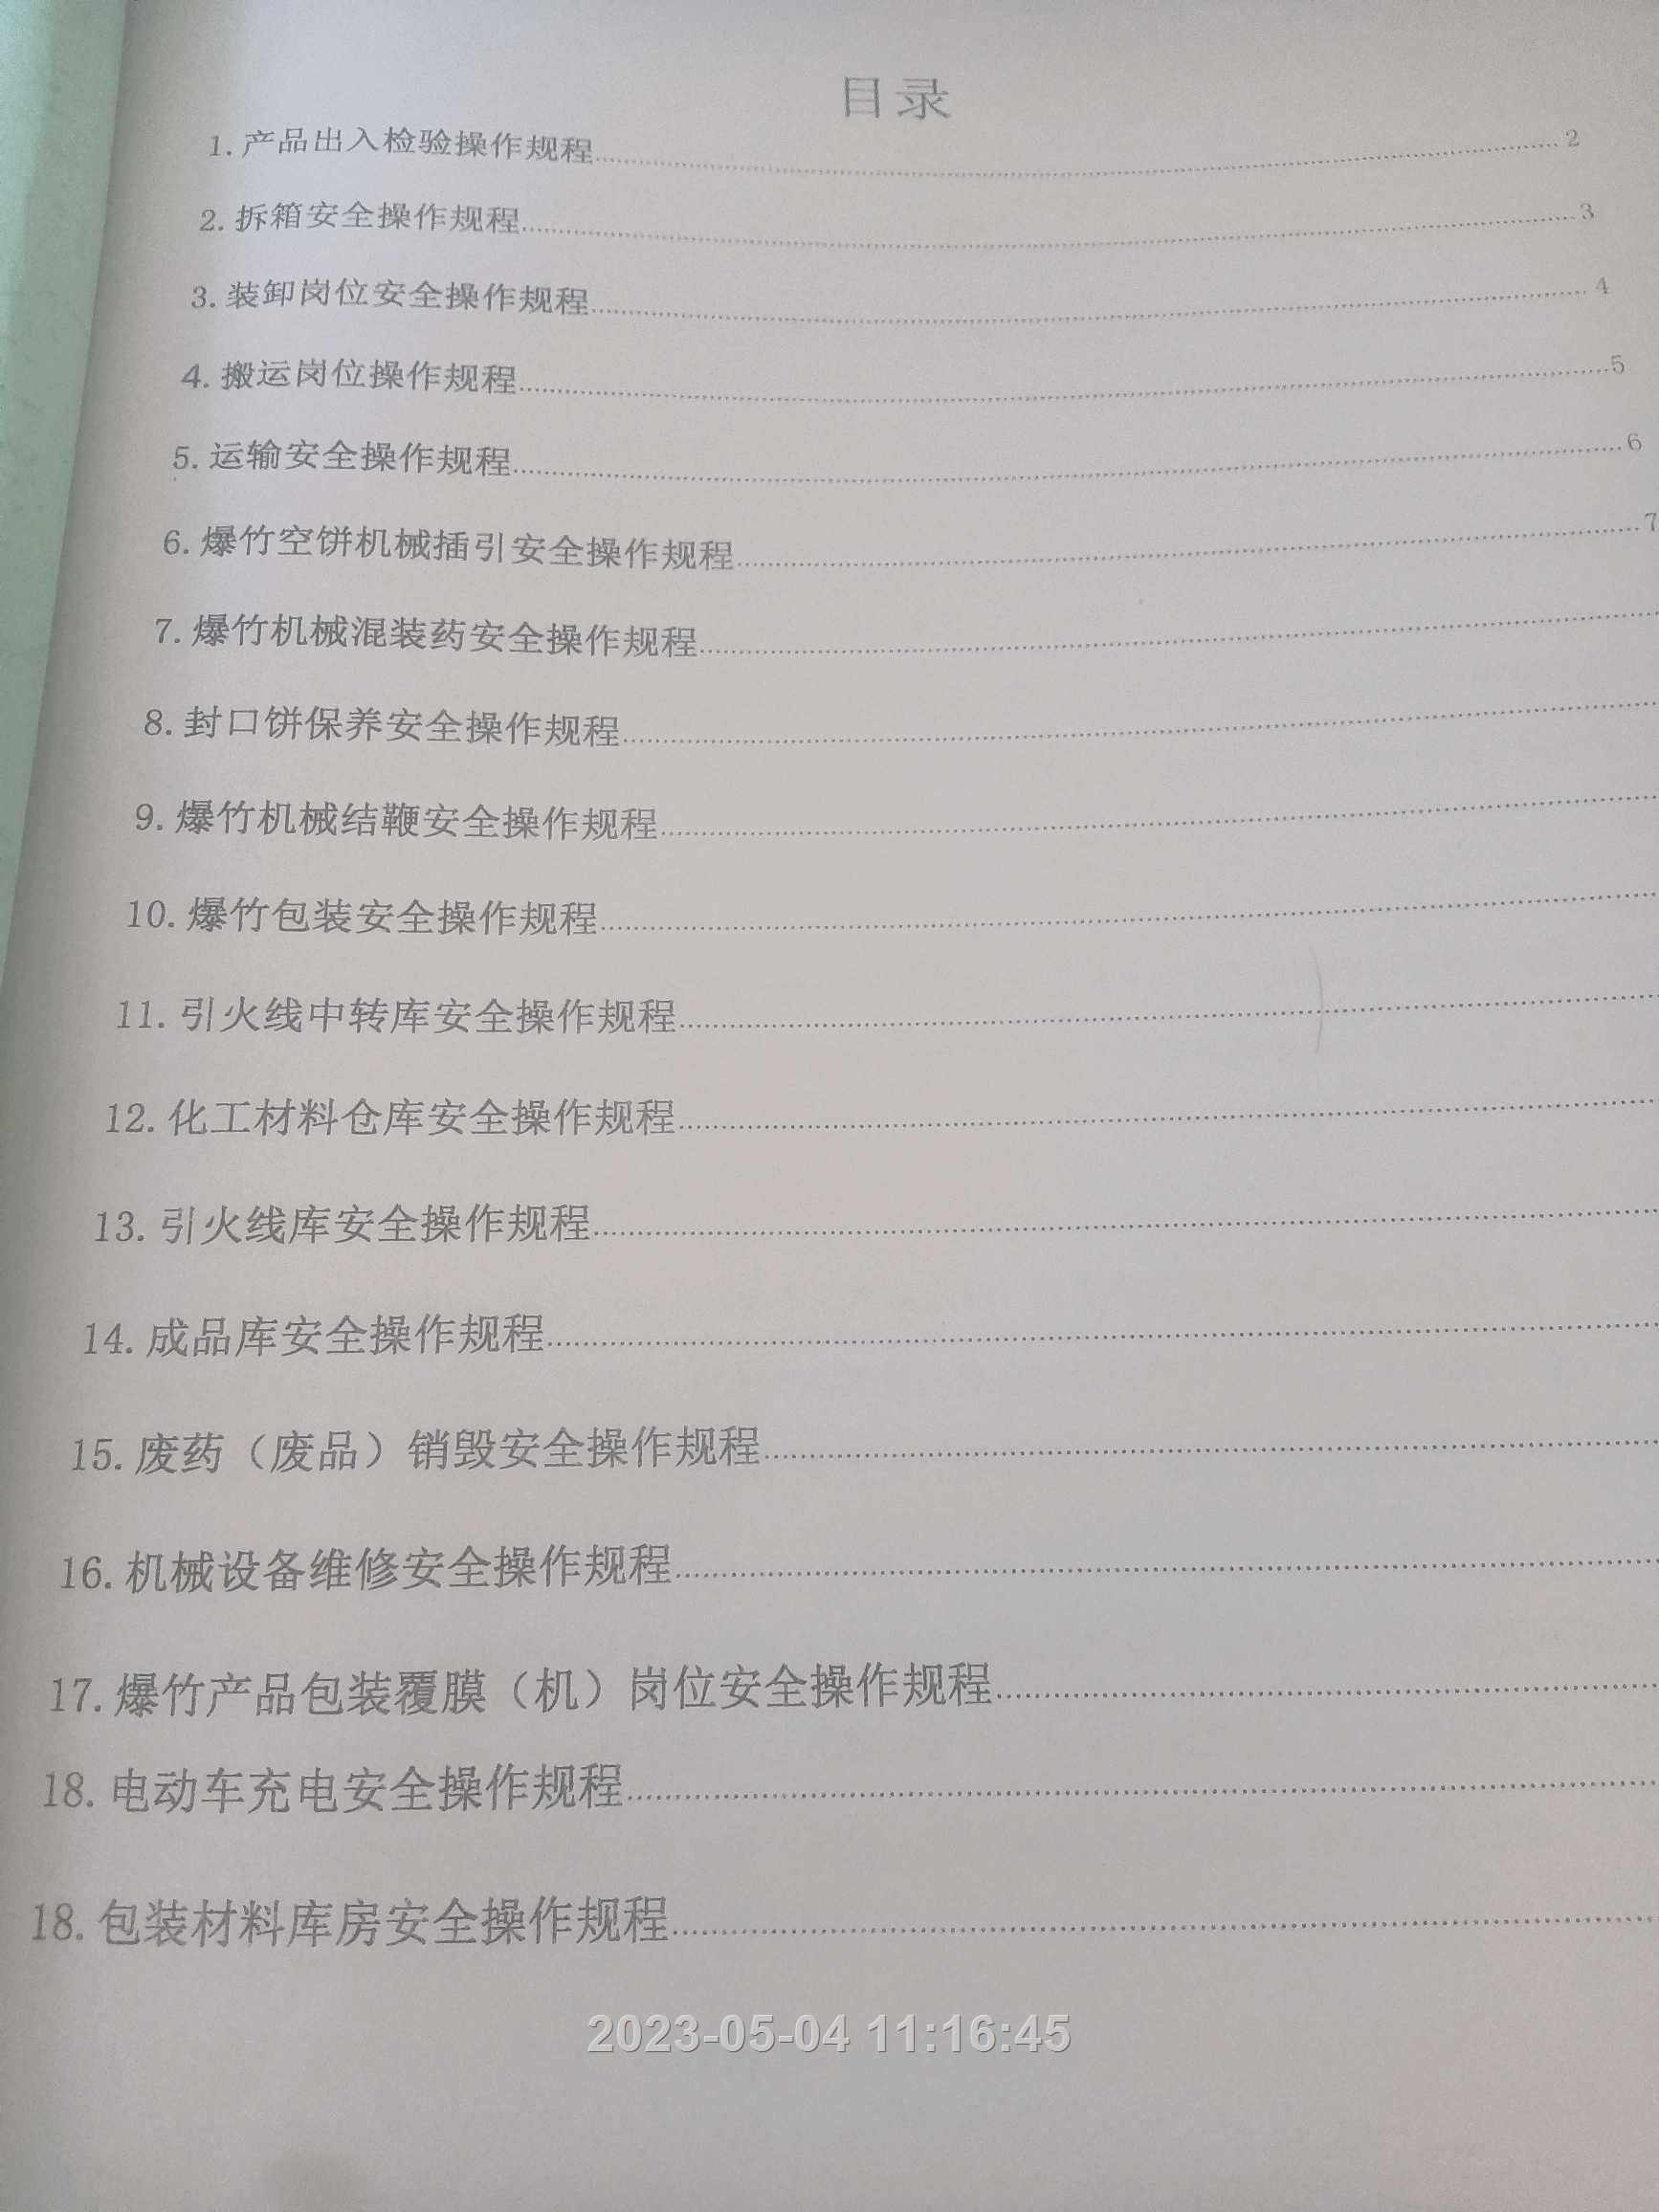 目录
1. 产品出入检验操作规程........2
2. 拆箱安全操作规程........3
3. 装卸岗位安全操作规程........4
4. 搬运岗位操作规程........5
5. 运输安全操作规程........6
6. 爆竹空饼机械插引安全操作规程........7
7. 爆竹机械混装药安全操作规程........
8. 封口饼保养安全操作规程........
9. 爆竹机械结鞭安全操作规程........
10. 爆竹包装安全操作规程........
11. 引火线中转库安全操作规程........
12. 化工材料仓库安全操作规程........
13. 引火线库安全操作规程........
14. 成品库安全操作规程........
15. 废药（废品）销毁安全操作规程........
16. 机械设备维修安全操作规程........
17. 爆竹产品包装覆膜（机）岗位安全操作规程........
18. 电动车充电安全操作规程........
18. 包装材料库房安全操作规程........
2023-05-04 11:16:45